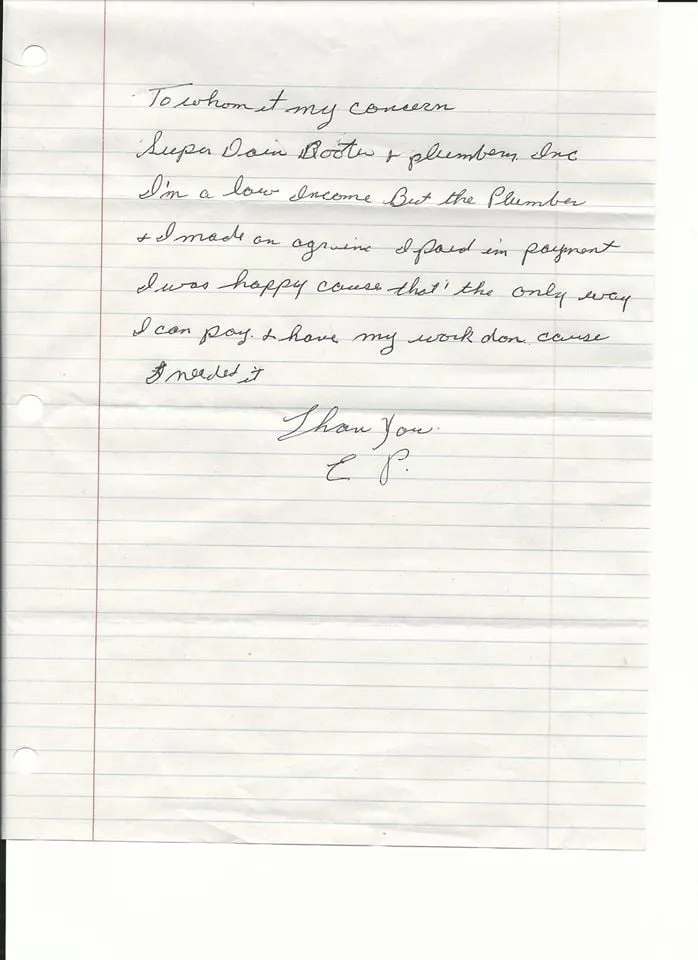 To whom it my concern
Super Dain Rooter & plumbers, Inc
I'm a low Income But the Plumber
& I made an agruine I paid im payment
I was happy cause that' the only way
I can pay. & have my work don cause
I needed it
Than You.
E P.